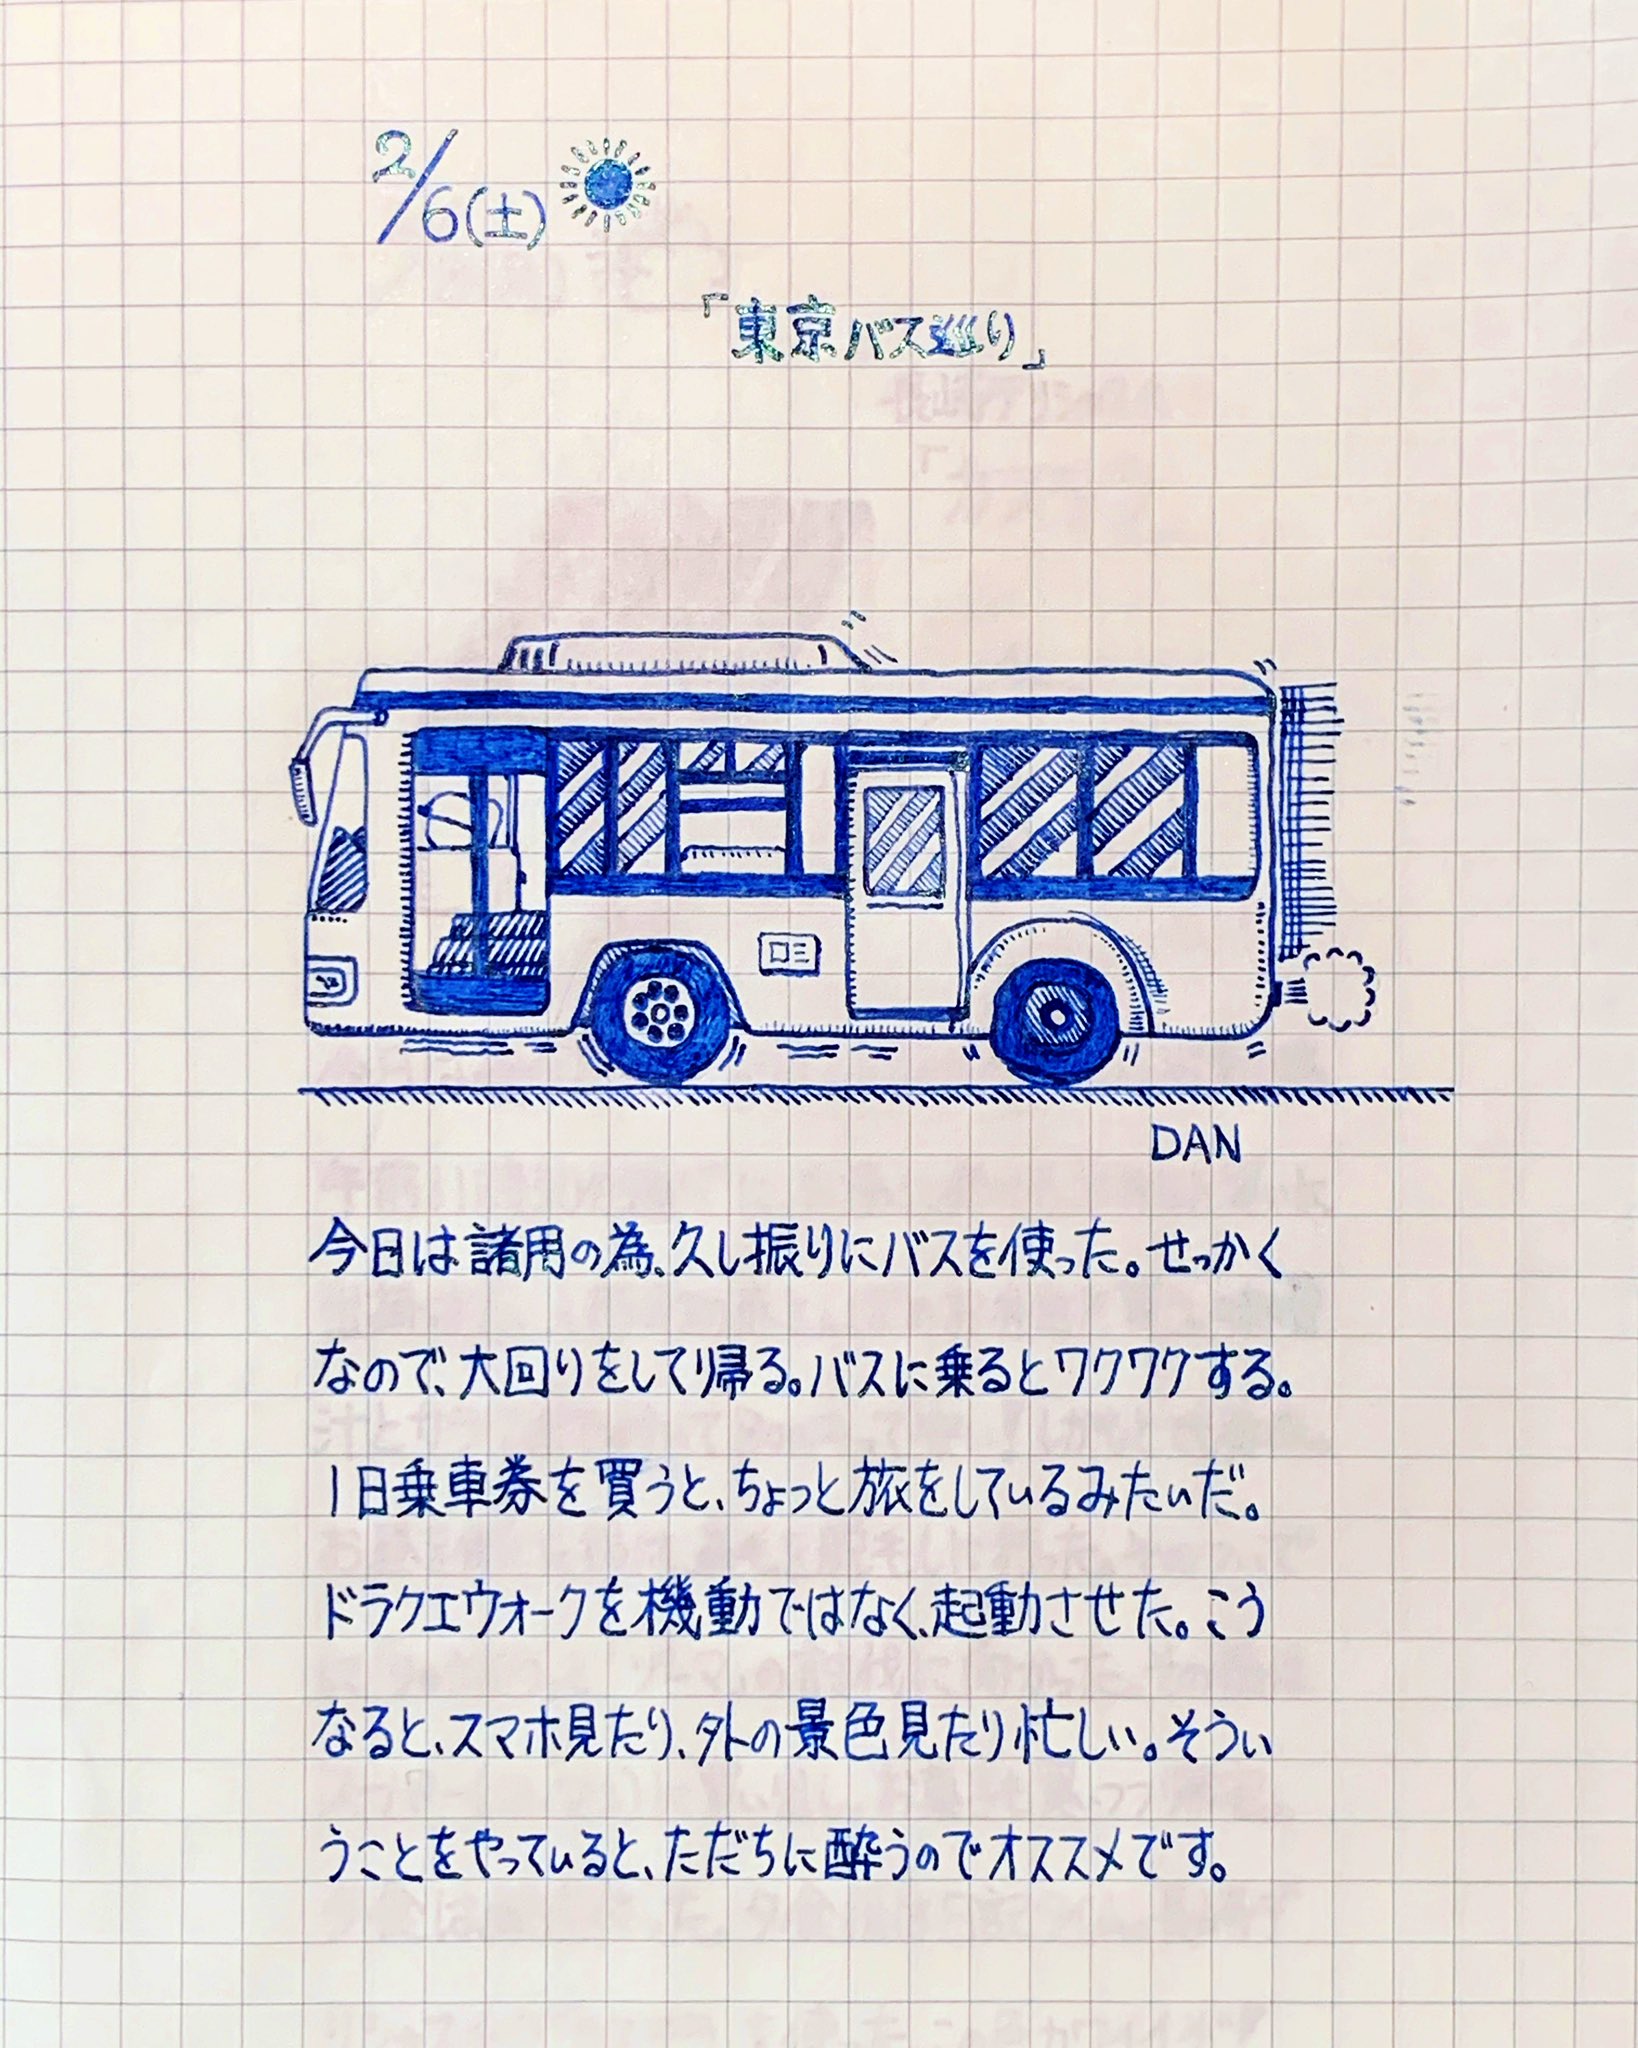 2/6(土)
「東京バス巡り」
DAN
今日は諸用の為、久し振りにバスを使った。せっかく
なので、大回りをして帰る。バスに乗るとワクワクする。
1日乗車券を買うと、ちょっと旅をしているみたいだ。
ドラクエウォークを機動ではなく、起動させた。こう
なると、スマホ見たり、外の景色見たり忙しい。そうい
うことをやっていると、ただちに酔うのでオススメです。